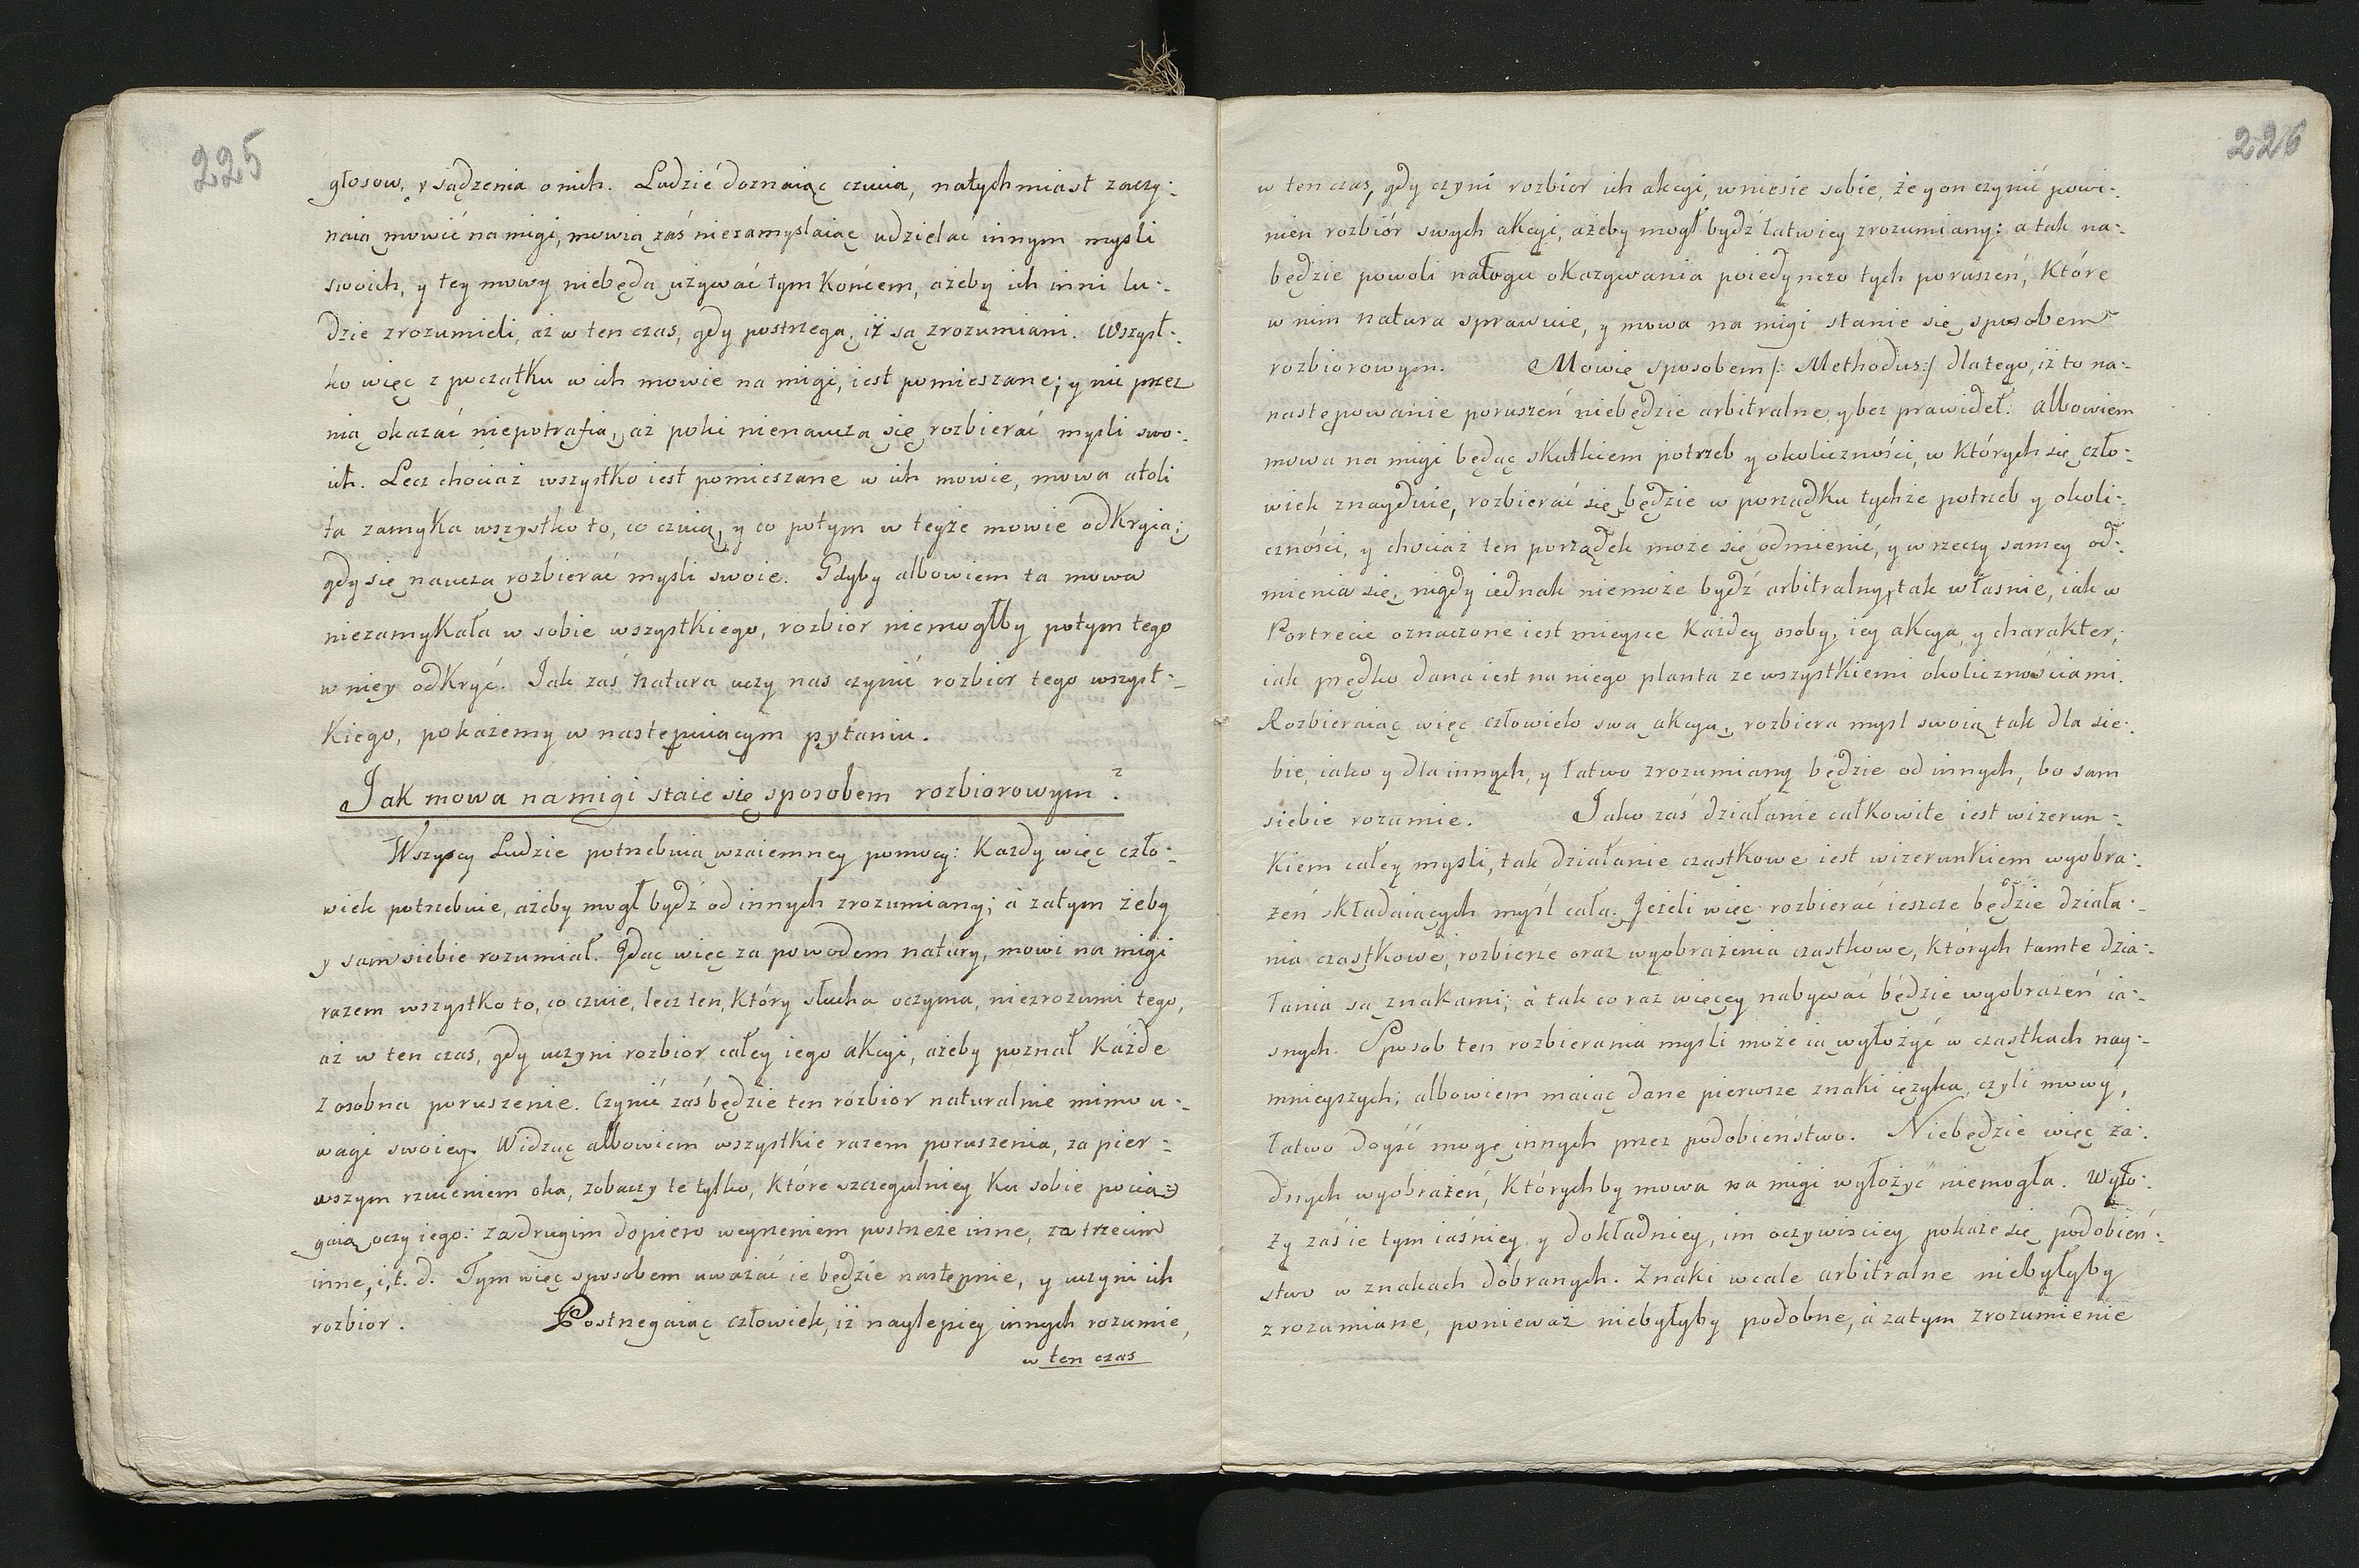 225
głosow, y sądzenia o nich. Ludzié doznaiąc czucia, natychmiast zaczy-:
naią mowić na migi, mowią zaś niezamyslaiąc udzielać innym mysli
swoich, y tey mowy niebędą używać tym końcem, ażeby ich inni lu-:
dzie zrozumieli, aż w ten czas, gdy postrzegą, iż są zrozumiani. Wszyst-:
ko więc z początku w ich mowie na migi, iest pomieszane; y nic przez
nią okazać niepotrafią, aż poki nienauczą się rozbierać mysli swo-:
ich. Lecz chociaż wszystko iest pomieszane w ich mowie, mowa atoli
ta zamyka wszystko to, co czuią, y co potym w teyże mowie odkryią;
gdy się nauczą rozbierać mysli swoie. Gdyby albowiem ta mowa
niezamykała w sobie wszystkiego, rozbior niemogłby potym tego
w niey odkryć. Jak zaś Natura uczy nas czynić rozbior tego wszyst-:
kiego, pokażemy w następuiącym pytaniu.
Jak mowa na migi staie się sposobem rozbiorowym?
Wszyscy Ludzie potrzebuią wzaiemney pomocy: Każdy więc czło-:
wiek potrzebuie, ażeby mogł bydź od innych zrozumiany; à zatym żeby
y sam siebie rozumiał. Idąc więc za powodem natury, mowi na migi
razem wszystko to, co czuie, lecz ten, który słucha oczyma, niezrozumi tego,
aż w ten czas, gdy uczyni rozbior całey iego akcyi, ażeby poznał każde
z osobna poruszenie. Czynić zaś będzie ten rozbior naturalnie mimo u-:
wagi swoiey. Widząc albowiem wszystkie razem poruszenia, za pier-:
wszym rzuceniem oka, zobaczy te tylko, które szczegulniey ku sobie pocią-
gaią oczy iego: za drugim dopiero weyrzeniem postrzeże inne, za trzecim
inne, i, t. d. Tym więc sposobem uważać ie będzie następnie, y uczyni ich
rozbior. Postrzegaiąc człowiek, iż naylepiey innych rozumie,
w ten czas
226
w ten czas, gdy czyni rozbior ich akcyi, wniesie sobie, że y on czynić powi-:
nien rozbiór swych akcyi, ażeby mogł bydź łatwiey zrozumiany: a tak na-:
będzie powoli nałogu okazywania poiedynczo tych poruszeń, które
w nim natura sprawuie, y mowa na migi stanie się sposobem
rozbiorowym. Mówię sposobem /: Methodus:/ dlatego, iż to na-:
następowanie poruszeń niebędzie arbitralne y bez prawideł. Albowiem
mowa na migi będąc skutkiem potrzeb y okoliczności, w których się czło-:
wiek znayduie, rozbierać się będzie w porządku tychże potrzeb y okoli-:
czności, y chociaż ten porządek może się odmienić, y w rzeczy samey od-:
mienia się, nigdy iednak niemoże bydź arbitralny, tak własnie, iak w
Portrecie oznaczone iest mieysce każdey osoby, iey akcya, y charakter,
iak prędko dana iest na niego planta ze wszystkiemi okolicznościami.
Rozbieraiąc więc człowiek swą akcyą, rozbiera mysl swoią tak dla sie-:
bie, iako y dla innych, y łatwo zrozumiany będzie od innych, bo sam
siebie rozumie. Jako zaś działanie całkowite iest wizerun-:
kiem całey mysli, tak działanie cząstkowe iest wizerunkiem wyobra-:
żeń składaiących mýsl całą. Jeżeli więc rozbierać ieszcze będzie działa-:
nia cząstkowe, rozbierze oraz wyobrażenia cząstkowe, których tamte dzia-:
łania są znakami; à tak co raz więcey nabywać będzie wyobrażeń ia-:
snych. Sposob ten rozbierania mysli może ią wyłożyć w cząstkach nay-:
mnieyszych; albowiem maiąc dane pierwsze znaki ięzyka, czyli mowy,
łatwo doyść mogę innych przez podobieństwo. Niebędzie więc ża-:
dnych wyobrażeń, którychby mowa na migi wyłożyć niemogła. Wyło-:
ży zaś ie tym iaśniey, y dokładniey, im oczywisciey pokaże się podobień-:
stwo w znakach dobranych. Znaki wcale arbitralne niebyłyby
zrozumiane, ponieważ niebyłyby podobne, à zatym zrozumienie